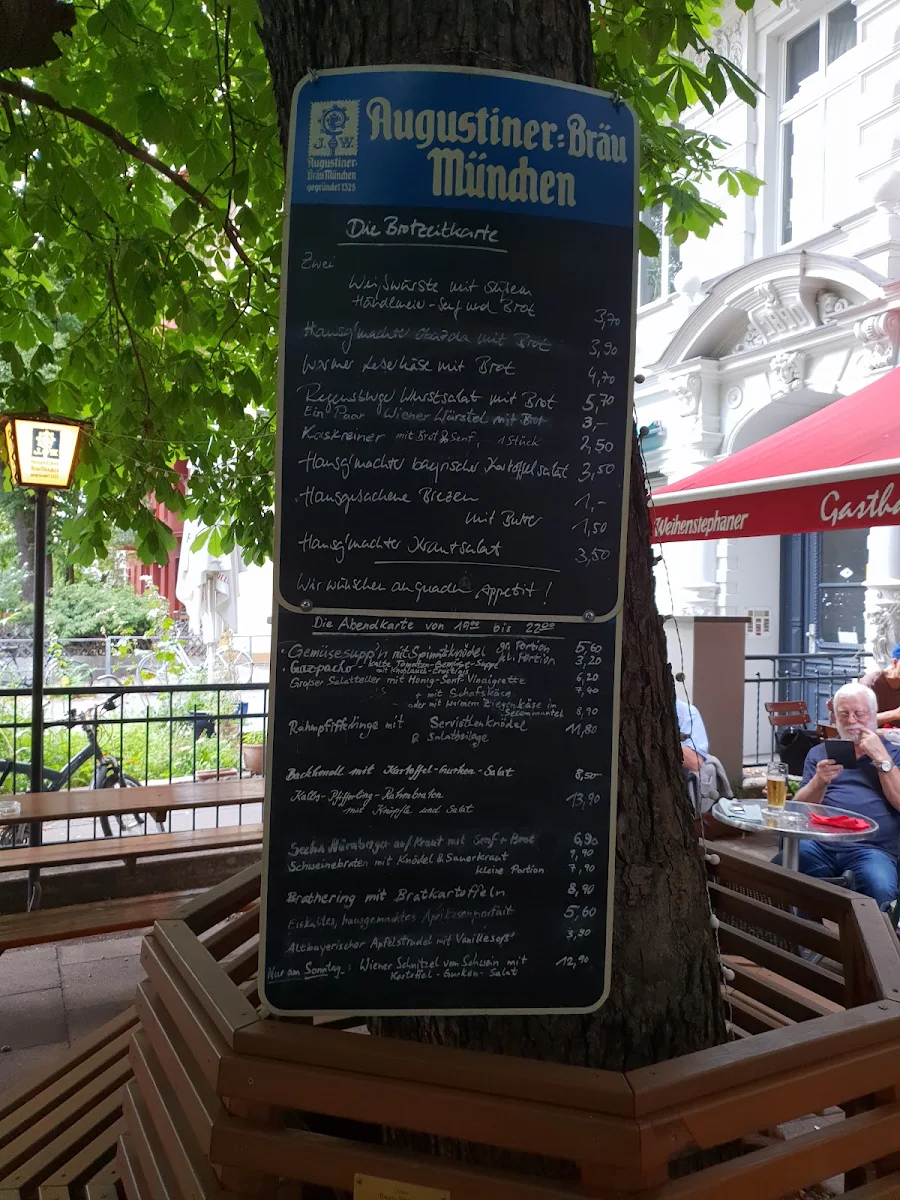 Augustiner-Bräu
München
J. W.
Augustiner-
Bräu München
gegründet 1328
Die Brotzeitkarte
Zwei
Weißwürste mit süßem
Händlmeier-Senf und Brot 3,70
Hausg'machter Obazda mit Brot 3,90
Warmer Leberkäse mit Brot 4,70
Regensburger Wurstsalat mit Brot 5,70
Ein Paar Wiener Würstel mit Brot 3,-
Kaskreiner mit Brot & Senf, 1 Stück 2,50
Hausg'machter bayrischer Kartoffelsalat 3,50
Brezen 1,-
mit Butter 1,50
Hausg'machter Krautsalat 3,50
Wir wünschen an guadn Appetit!
Die Abendkarte von 19:00 bis 22:00
Gemüsesupp'n mit Spinatknödel gr. Portion 5,60
Gazpacho - kalte Tomaten-Gemüse-Suppe kl. Portion 3,20
mit Knoblauch-Croutons
Großer Salatteller mit Honig-Senf-Vinaigrette 6,20
+ mit Schafskäse 7,90
- oder mit warmem Ziegenkäse im 8,90
Rahmpfifferlinge mit Serviettenknödel 11,80
& Salatbeilage
Backhendl mit Kartoffel-Gurken-Salat 8,50
Kalbs-Pfifferling-Rahmbraten 13,90
mit Knöpfle und Salat
Sechs Nürnberger auf Kraut mit Senf + Brot 6,90
Schweinebraten mit Knödel & Sauerkraut 9,90
kleine Portion 7,90
Brathering mit Bratkartoffeln 8,90
Eiskaltes, hausgemachtes Aprikosenparfait 5,60
Altbayerischer Apfelstrudel mit Vanillesoß' 3,90
Nur am Sonntag: Wiener Schnitzel vom Schwein mit 12,90
Kartoffel-Gurken-Salat
Weihenstephaner
Gastha